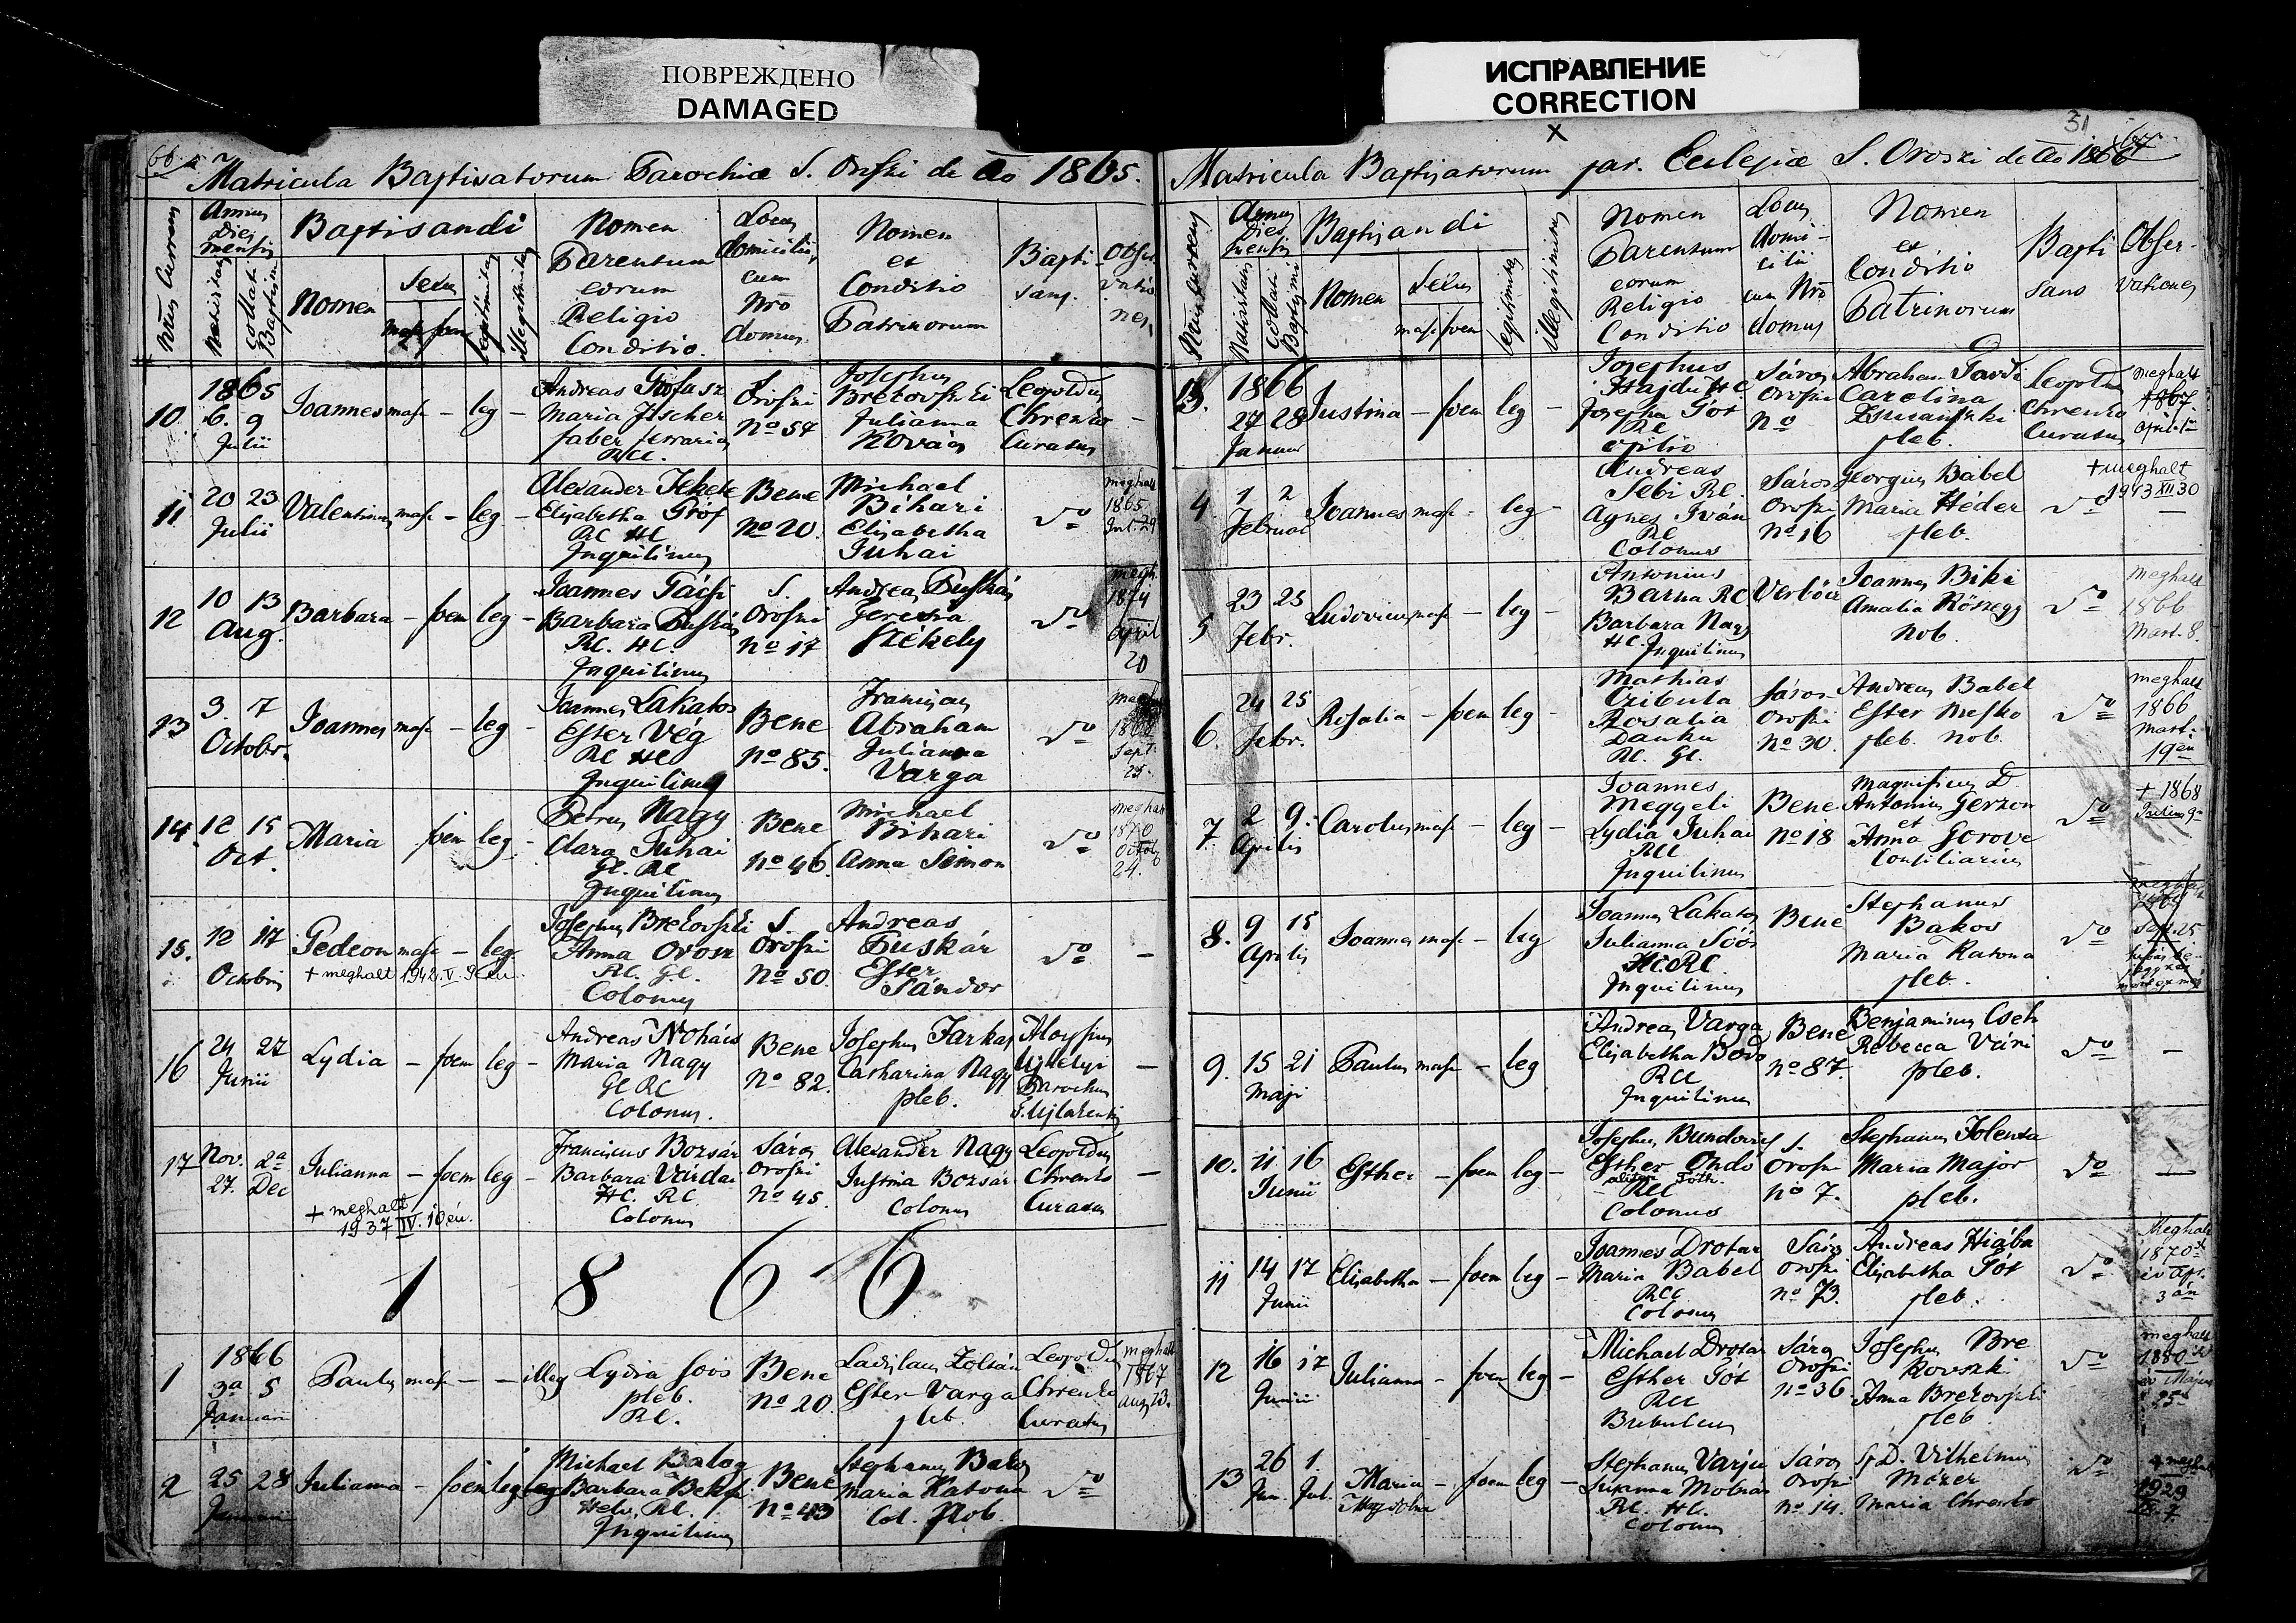 ПОВРЕЖДЕНО
DAMAGED
ИСПРАВЛЕНИЕ
CORRECTION
66
Matricula Baptisatorum Parochiæ S. Oroszi de Ao 1865.
Nrus Currens
Annus Dies mensis
Natività­tis
Collati Baptismi
Baptisandi
Nomen
Sexus
masc foem
legitimitas
illegitimitas
Nomen
Parentum
eorum
Religio
Conditio.
Locus
domicilii
cum
Nro
domus
Nomen
et
Conditio
Patrinorum
Bapti-
sans.
Obser
vatio
nes
10
1865
6. 9
Julii
Joannes masc - leg -
Andreas
Maria Fischer
faber ferrarius
RCC.
S.
Oroszi
No 57
Josephus
Brezovszki
Julianna
Kovács
Leopoldus
Chrenko
Curatus
-
11
20 23
Julii
Valentinus masc - leg -
Alexander Fekete
Elisabetha Gróf
RC HC
Inquilinus
Bene
No 20.
Michael
Bihari
Elisabetha
Juhai
Do
meghalt
1865
Jul. 29
12
10 13
Aug.
Barbara - foem leg -
Joannes Pácsi
Barbara Puskás
RC. HC.
Inquilinus
S.
Oroszi
No 17
Andreas Puskás
Teresia
Székely
Do
megh.
1874
April
20
13
3. 7
Octobr.
Joannes masc - leg -
Joannes Lakatos
Ester Vég
RC HC
Inquilinus
Bene
No 85.
Franciscus
Abraham
Julianna
Varga
Do
Sept.
25.
14.
12 15
Oct.
Maria foem leg -
Petrus Nagy
Clara Juhai
Gl. RC
Inquilinus
Bene
No 46.
Michael
Bihari
Anna Simon
Do
meghalt
1870
Octob
24.
15.
12 17
Octobris
Gedeon masc - leg.
+ meghalt 1942. V. 9én.
Josephus Brezovszki
Anna Orosz
RC. Gl.
Colonus
S.
Oroszi
No 50.
Andreas
Puskár
Ester
Sándor
Do
-
16
24 27
Junii
Lydia - foem leg -
Andreas Nohács
Maria Nagy
Gl RC
Colonus.
Bene
No 82.
Josephus Farkas
Catharina Nagy
pleb.
Aloysius
Ujhelyi
Parochus
-
17
Nov. 2a
27. Dec
Julianna - foem leg -
+ meghalt
1937 IV. 10én.
Franciscus Bozsár
Barbara Várdai
HC. RC.
Colonus
Sáros
Oroszi
No 45.
Alexander Nagy
Justina Bozsár
Colonus
Leopoldus
Chrenko
Curatus
-
1 8 6 6
1
1866
3a 5
Januarii
Paulus masc - - illeg
Lydia Soós
pleb.
RC.
Bene
No 20.
Ladislaus Zoltán
Ester Varga
pleb.
Leopoldus
Chrenko
Curatus
meghalt
1867
aug 23.
2
25 28
Januarii
Julianna - foem leg
Michael Balog
Barbara
Helv. RC.
Inquilinus
Bene
No 43
Stephanus Bakos
Maria Katona
Col. Pleb.
Do
31
67
Matricula Baptisatorum par. Eclesiæ S. Oroszi de Ao 1866
Nrus Currens
Annus
Dies
mensis
Nativitatis
Collati Baptismi
Baptisandi
Nomen
Sexus
masc foem
legitimitas
illegitimitas
Nomen
Parentum
eorum
Religio
Conditio
Locus
domi-
cilii
cum Nro
domus
Nomen
et
Conditio
Patrinorum
Bapti
sans
Obser-
vationes
3.
1866
27 28
Januar
Justina - foem leg -
Josephus
Hajdu HC.
Josepha Tót
RC
opilio
Sáros
Oroszi
No
Abraham Pardi
Carolina
pleb.
Leopoldus
Chrenko
Curatus
meghalt
1867.
April. 1én
4
1 2
Februar
Joannes masc - leg -
Andreas
Sebi RC.
Agnes Iván
RC
Colonus
Sáros
Oroszi
No 16
Georgius Bábel
Maria Héder
pleb.
Do
+ meghalt
1943 XII 30
-
5
23 25
Febr.
Ludovicus masc - leg -
Antonius
Barna RC
Barbara Nagy
HC. Inquilinus
Verböcz
Joannes Biki
Amalia Köszegy
Nob.
Do
meghalt
1866
Mart. 8.
6.
24 25
Febr.
Rosalia - foem leg -
Mathias
Czibula
Rosalia
Danku
RC. Gl.
Sáros
Oroszi
No 30.
Andreas Babel
Ester Mesko
pleb. Nob.
Do
meghalt
1866
Mart.
19én
7.
2 9.
Aprilis
Carolus masc - leg -
Joannes
Megyeli
Lydia Juhai
RCC
Inquilinus
Bene
No 18
Magnificus D.
Antonius Gerzon
et
Anna Gorove
Consiliarius
Do
+ 1868
Julius 9n
8.
9 15
Aprilis
Joannes masc - leg
Joannes Lakatos
Julianna Soós
HC. RC.
Inquilinus
Bene
Stephanus
Bakos
Maria Katona
pleb.
Do
Sept. 25
9.
15 21
Maji
Paulus masc - leg
Andreas Varga
Elisabetha Bodo
RCC
Inquilinus
Bene
No 87.
Benjaminus Cseh
Rebecca Vári
pleb.
Do
-
10.
11 16
Junii
Esther - foem leg -
Josephus Bundovics
Esther Ondo
aliter Tóth.
RCC
Colonus
S.
Oroszi
No 7.
Stephanus Holenda
Maria Major
pleb.
Do
-
11
14 17
Junii
Elisabetha - foem leg -
Joannes Drotar
Maria Babel
RCC
Colonus
Sáros
Oroszi
No 73.
Andreas Hiába
Elisabetha Tót
pleb.
Do
Meghalt
1870ik
év Apr.
3án
12
16 17
Junii
Julianna - foem leg -
Michael Drotar
Esther Tót
RCC
Bubulcus
Sáros
Oroszi
No 36.
Josephus Bre
kovszki
Anna Brezovszki
pleb
Do
meghalt
1880ik
év Majus
25n
13
26 1.
Jun. Jul.
Maria
Magdolna
- foem leg -
Stephanus Varju
Susanna Molnár
RC. HC.
Colonus
Sáros
Oroszi
No 14.
Sp D. Vilhelmus
Mózer
Maria Chrenko
Do
+ meghalt
1929
IX. 7.